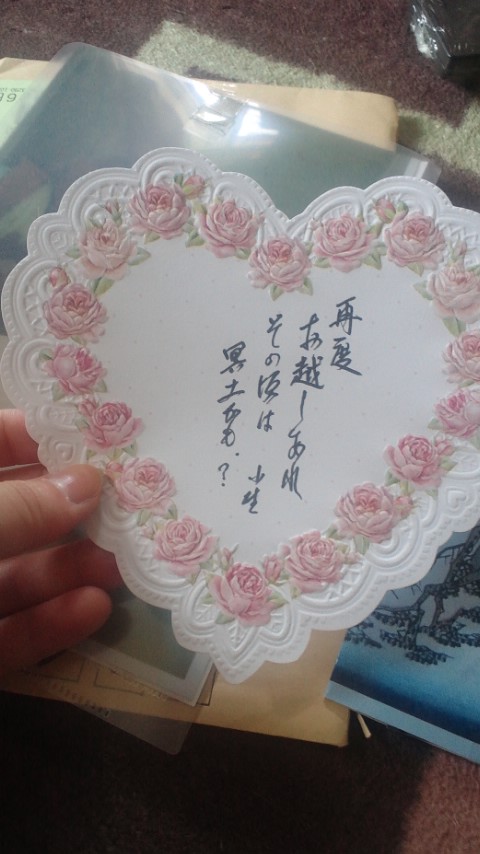 再度
お越しあれ
その頃は 小生
冥土かも．？